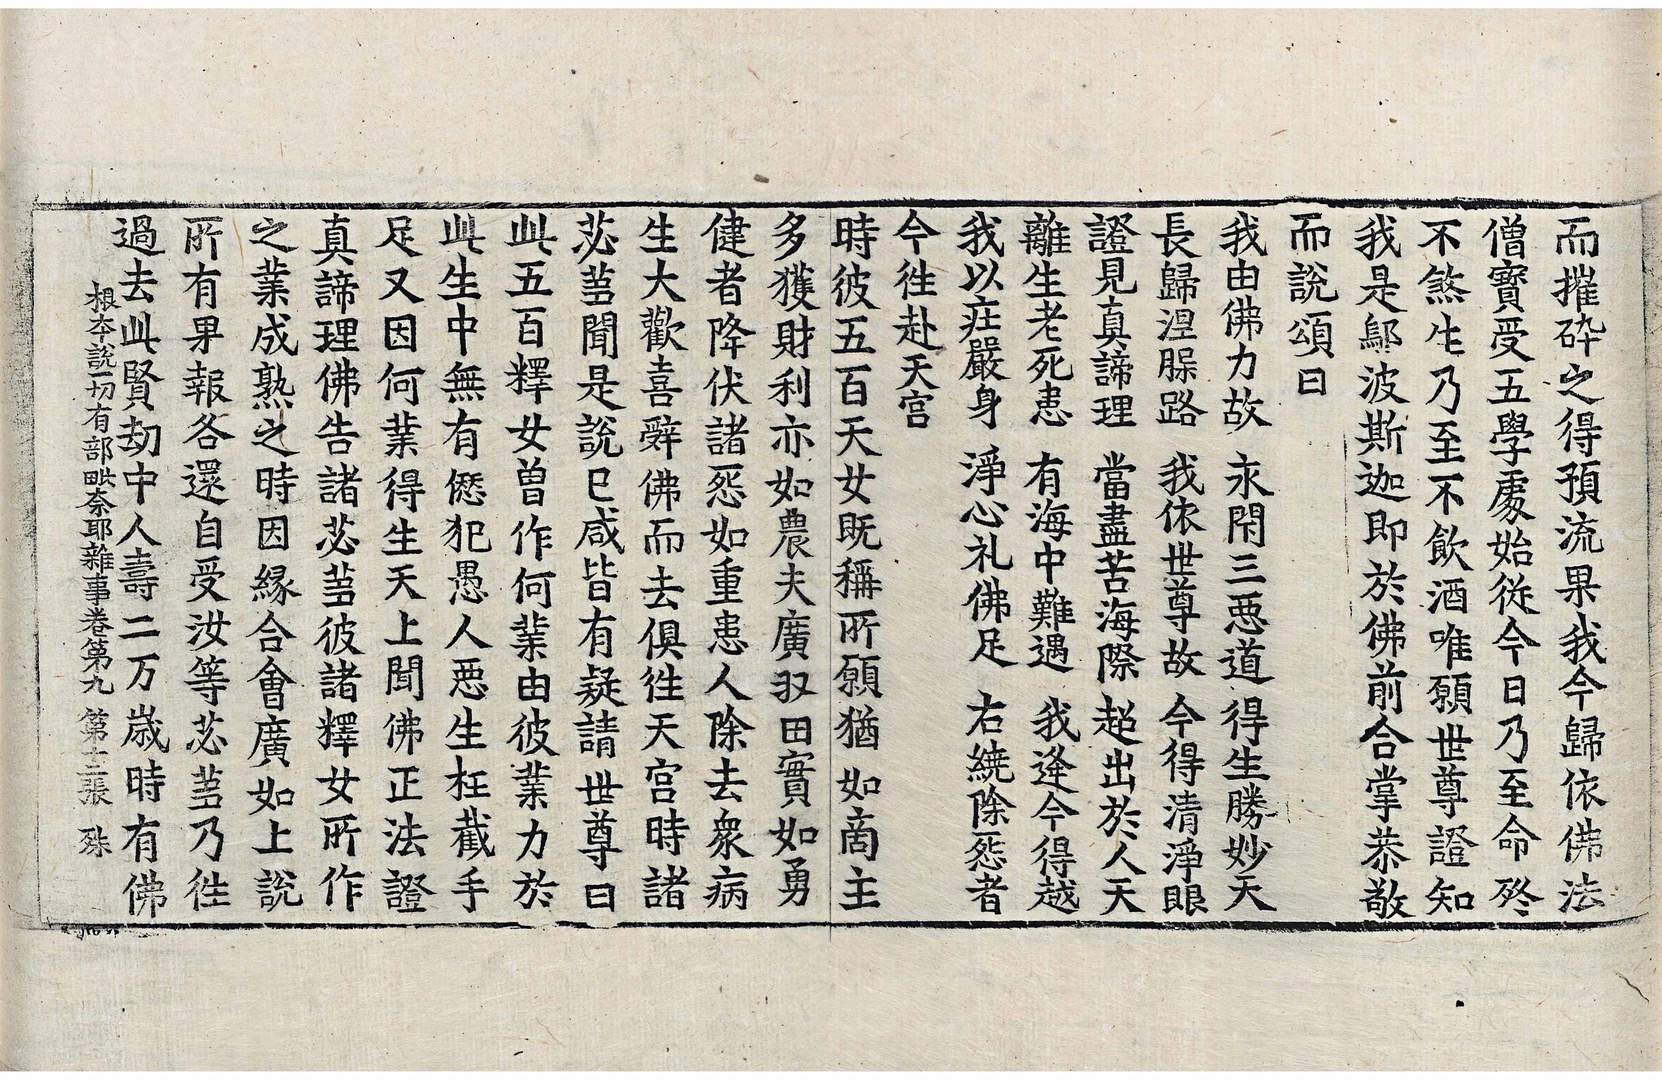 而摧碎之得預流果我今歸依佛法
僧寶受五學處始從今日乃至命終
不煞生乃至不飲酒唯願世尊證知
我是鄔波斯迦即於佛前合掌恭敬
而說頌曰
我由佛力故 永閇三惡道 得生勝妙天
長歸涅槃路 我依世尊故 今得清淨眼
證見真諦理 當盡苦海際 超出於人天
離生老死患 有海中難遇 我逢今得越
我以莊嚴身 淨心礼佛足 右繞除怨者
今往赴天宮
時彼五百天女既稱所願猶如商主
多獲財利亦如農夫廣収田實如勇
健者降伏諸怨如重患人除去衆病
生大歡喜辭佛而去俱往天宮時諸
苾芻聞是說已咸皆有疑請世尊曰
此五百釋女曾作何業由彼業力於
此生中無有愆犯愚人惡生枉截手
足又因何業得生天上聞佛正法證
真諦理佛告諸苾芻彼諸釋女所作
之業成熟之時因緣合會廣如上說
所有果報各還自受汝等苾芻乃往
過去此賢劫中人壽二万歲時有佛
根本說一切有部毗奈耶雜事卷第九 第十二張 殊